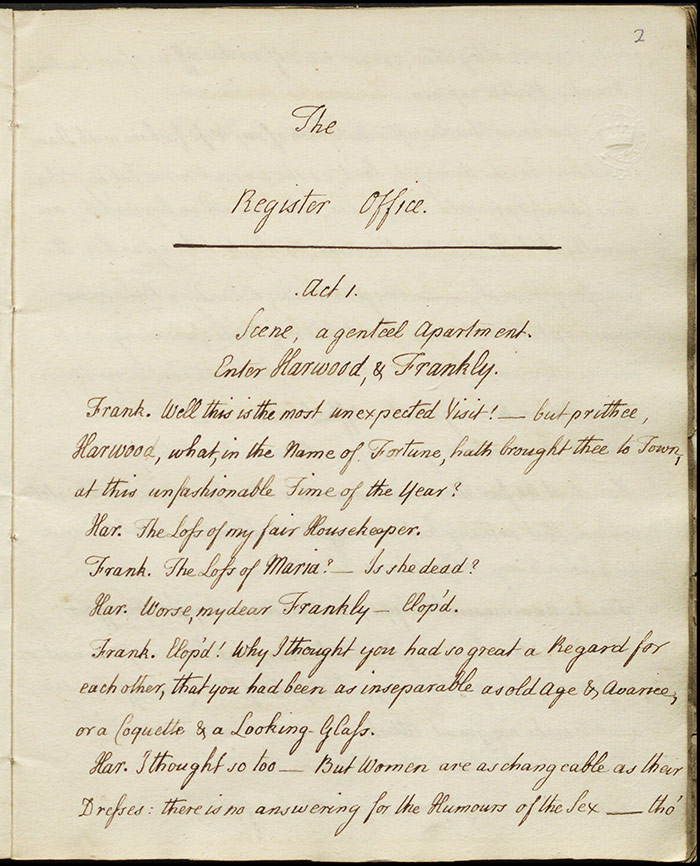 2
The
Register Office.
Act 1.
Scene, a genteel Apartment.
Enter Harwood, & Frankly.
Frank. Well this is the most unexpected Visit! — but prithee,
Harwood, what, in the Name of Fortune, hath brought thee to Town,
at this unfashionable Time of the Year?
Har. The Loſs of my fair Housekeeper.
Frank. The Loſs of Maria? — Is she dead?
Har. Worse, my dear Frankly — Elop'd.
Frank. Elop'd! Why I thought you had so great a Regard for
each other, that you had been as inseparable as old Age & Avarice,
or a Coquette & a Looking-Glaſs.
Har. I thought so too — But Women are as changeable as their
Dreſses: there is no answering for the Humours of the Sex — tho'